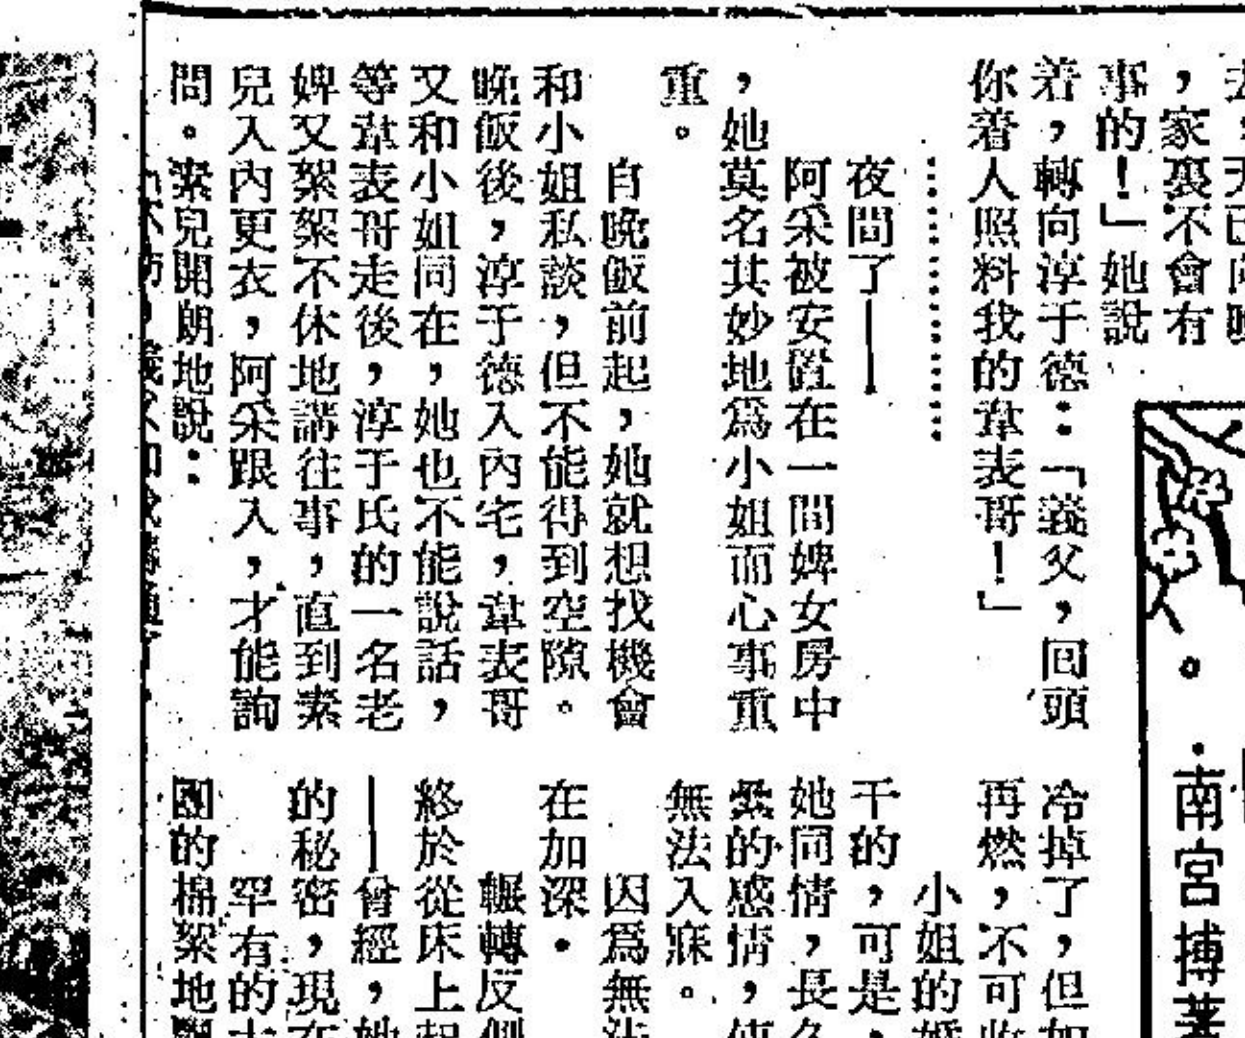 ，家裏不會有
事的！」她說
着，轉向淳于德：「義父，回頭
你着人照料我的韋表哥！」
…………
夜間了——
阿采被安置在一間婢女房中
，她莫名其妙地爲小姐而心事重
重。
自晩飯前起，她就想找機會
和小姐私談，但不能得到空隙。
晩飯後，淳于德入內宅，韋表哥
又和小姐同在，她也不能說話，
等韋表哥走後，淳于氏的一名老
婢又絮絮不休地講往事，直到素
兒入內更衣，阿采跟入，才能詢
問。素兒開朗地說：
冷掉了，但
再燃，不可
小姐的
干的，可是，
她同情，長
的感情，
無法入寐。
因爲無法
在加深。
輾轉反側
終於從床上起
——曾經，她
的秘密，現在
罕有的
團的棉絮地
。·南宮搏著